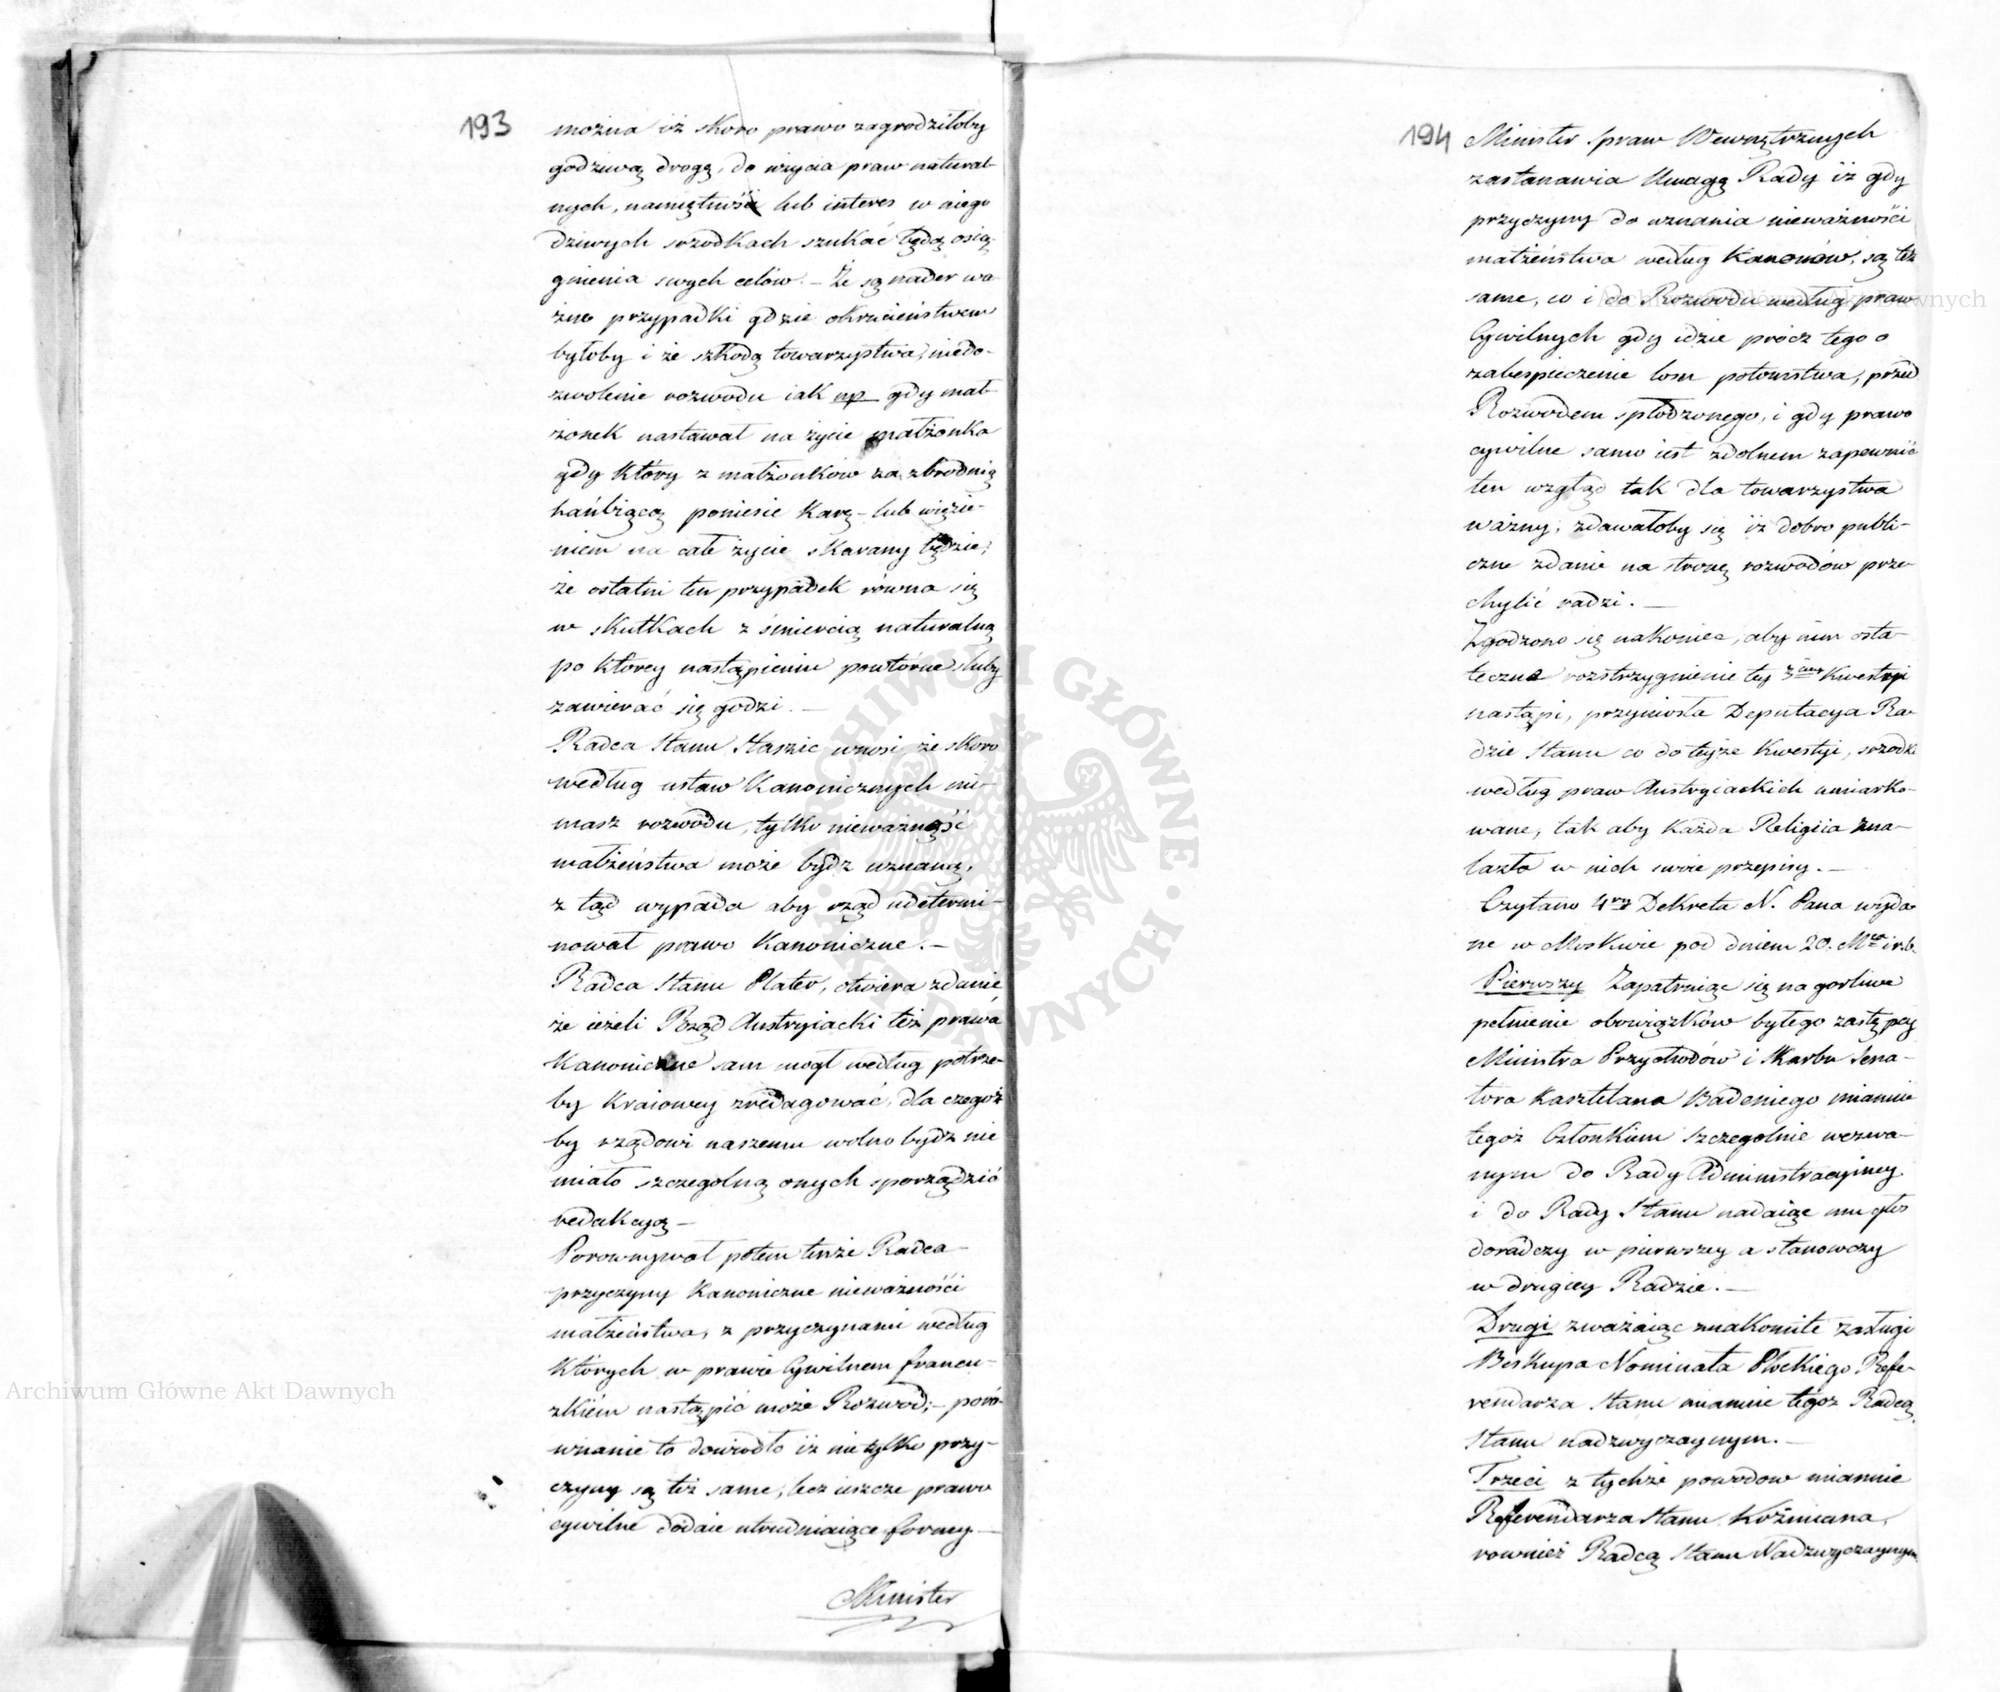 193
można iż skoro prawo zagrodziłoby
godziwą drogę, do użycia praw natural-
nych, namiętność lub interes w niego
dziwych srzodkach szukać będą osią-
gnienia swych celów. – Że są nader wa-
żne przypadki gdzie okrucieństwem
byłoby i ze szkodą towarzystwa, niedo-
zwolenie rozwodu iak np gdy mał-
żonek nastawał na życie małżonka
gdy który z małżonków za zbrodnią
hańbiącą poniesie karę – lub więzie-
niem na całe życie skarany będzie;
że ostatni ten przypadek równa się
w skutkach z śmiercią naturalną
po którey nastąpieniu powtórne śluby
zawierać się godzi. –
Radca Stanu Staszic wnosi, że skoro
według ustaw Kanonicznych nie-
masz rozwodu, tylko nieważność
małżeństwa może bydź uznaną,
z tąd wypada aby rząd udetermi-
nował prawo Kanoniczne. –
Radca Stanu Plater, otwiera zdanie
że ieżeli Rząd Austryiacki też prawa
Kanoniczne sam mogł według potrze-
by Kraiowey zredagować, dla czegoż
by rządowi naszemu wolno bydź nie
miało szczegolną onych sporządzić
redakcyą –
Porownywał potem tenże Radca
przyczyny Kanoniczne nieważności
małżeństwa, z przyczynami według
których w prawie Cywilnem francu-
zkiém nastąpić może Rozwód; – poró-
wnanie to dowiodło iż nietylko przy-
czyny są też same, lecz ieszcze prawo
cywilne dodaie utrudniaiące formy. –
Minister
194
Minister Spraw Wewnętrznych
zastanawia Uwagę Rady iż gdy
przyczyny do uznania nieważności
małżeństwa według Kanonów, są też
same, co i do Rozwodu według praw
Cywilnych gdy idzie prócz tego o
zabespieczenie losu potomstwa, przed
Rozwodem spłodzonego, i gdy prawo
cywilne samo iest zdolnem zapewnić
ten wzgląd tak dla towarzystwa
ważny, zdawałoby się iż dobro publi-
czne zdanie na stronę rozwodów prze-
chylić radzi. –
Zgodzono się nakoniec, aby nim osta-
teczne rozstrzygnienie tey Kwestyi
nastąpi, przyniosła Deputacya Ra-
dzie Stanu co do teyże Kwestyi, srzodki
według praw Austryiackich umiarko-
wane, tak aby każda Religiia zna-
lazła w nich swoie przepisy. –
Czytano 4ry Dekreta N. Pana wyda-
ne w Moskwie pod dniem 20. Mca i r. b.
Pierwszy Zapatruiąc się na gorliwe
pełnienie obowiązków byłego zastępcy
Ministra Przychodów i Skarbu Sena-
tora Kasztelana Badeniego mianuie
tegoż Członkiem szczegolnie wezwa-
nym do Rady Administracyiney
i do Rady Stanu nadaiąc mu głos
doradczy w pierwszey a stanowczy
w drugiey Radzie. –
Drugi zważaiąc znakomite zasługi
Biskupa Nominata Płockiego Refe-
rendarza Stanu mianuie tegoż Radcą
Stanu nadzwyczaynym. –
Trzeci z tychże powodow mianuie
Referendarza Stanu Koźmiana,
rownież Radcą Stanu Nadzwyczaynym
Archiwum Główne Akt Dawnych
Archiwum Główne Akt Dawnych
ARCHIWUM GŁÓWNE AKT DAWNYCH